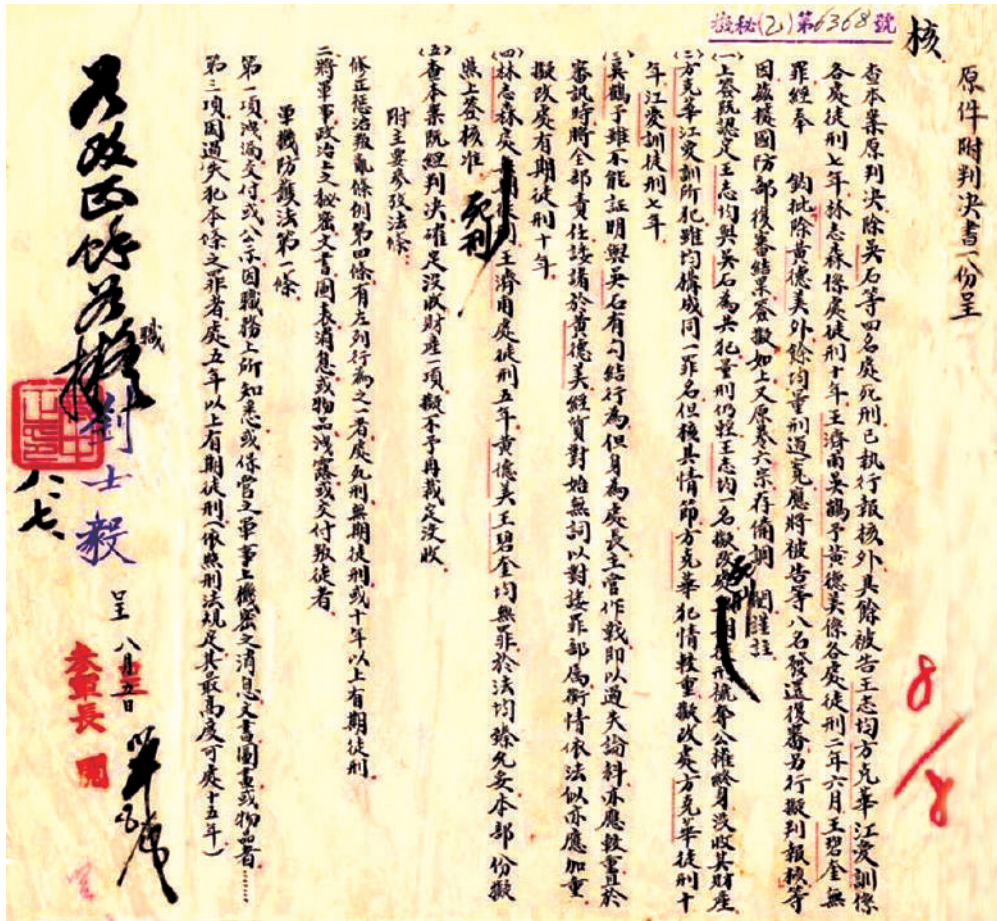 機秘(乙)第6368號
核
原件附判決書一份呈
查本案原判決除吳石等四名處死刑已執行報核外其餘被告王志均方克華江愛訓係
各處徒刑七年林志森係處徒刑十年王濟甫吳鶴予黃德美係各處徒刑二年六月王碧奎無
罪經奉 鈞批除黃德美外餘均量刑過輕應將被告等八名發還復審另行擬判報核等
因茲據國防部復審結果簽擬如上又原卷六宗存備調閱謹註
(一)上簽既認定王志均與吳石為共犯量刑仍輕王志均一名擬改處 死刑 褫奪公權終身沒收其財產
(二)方克華江愛訓所犯雖均構成同一罪名但核其情節方克華犯情較重擬改處方克華徒刑十
年江愛訓徒刑七年
(三)吳鶴予雖不能証明與吳石有勾結行為但身為處長主管作戰即以過失論科亦應較重且於
審訊時將全部責任諉諸於黃德美經質對始無詞以對諉罪部屬衡情依法似亦應加重
擬改處有期徒刑十年
(四)林志森處 死刑 王濟甫處徒刑五年黃德美王碧奎均無罪於法均臻允妥本部份擬
照上簽核准
(五)查本案既經判決確定沒收財產一項擬不予再裁定沒收
附主要參攷法條：
修正懲治叛亂條例第四條有左列行為之一者處死刑無期徒刑或十年以上有期徒刑
二、將軍事政治上之秘密文書圖表消息或物品洩露或交付叛徒者
軍機防護法第一條
第一項洩漏交付或公示因職務上所知悉或保管之軍事上機密之消息文書圖畫或物品者……
第三項因過失犯本條之罪者處五年以上有期徒刑(依照刑法規定其最高度可處十五年)
職
劉士毅
呈 八月五日
參軍長
八、七、
8/8